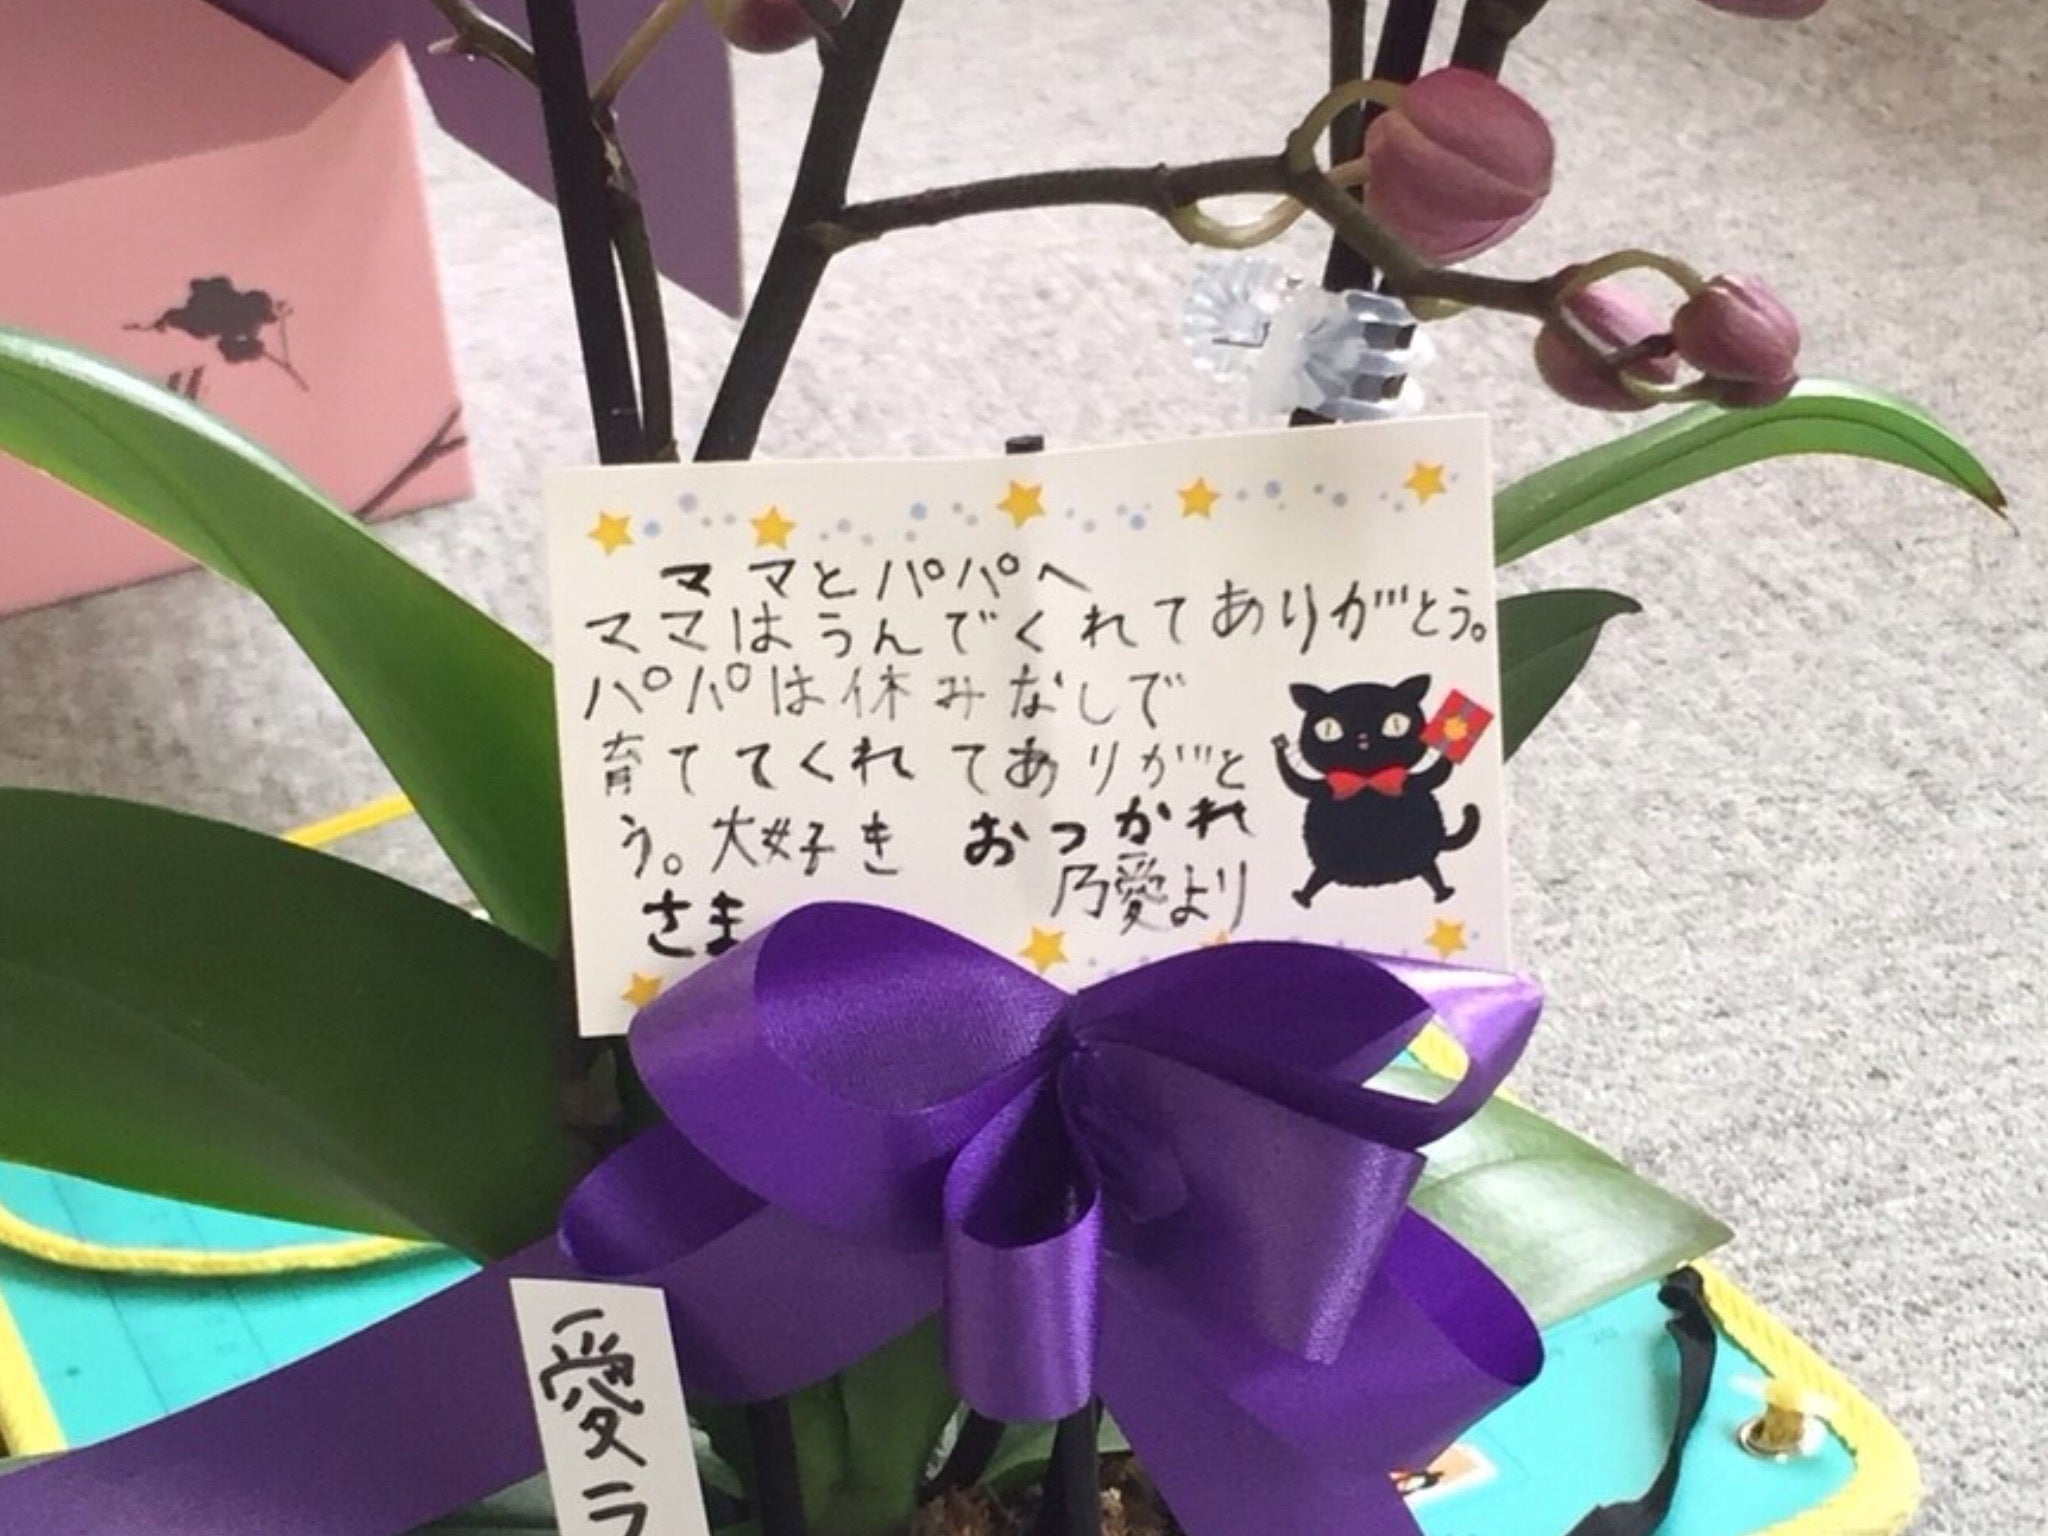 ママとパパへ
ママはうんでくれてありがとう。
パパは休みなしで
育ててくれてありがと
う。大好き おつかれ
さま 乃愛より
愛ラ